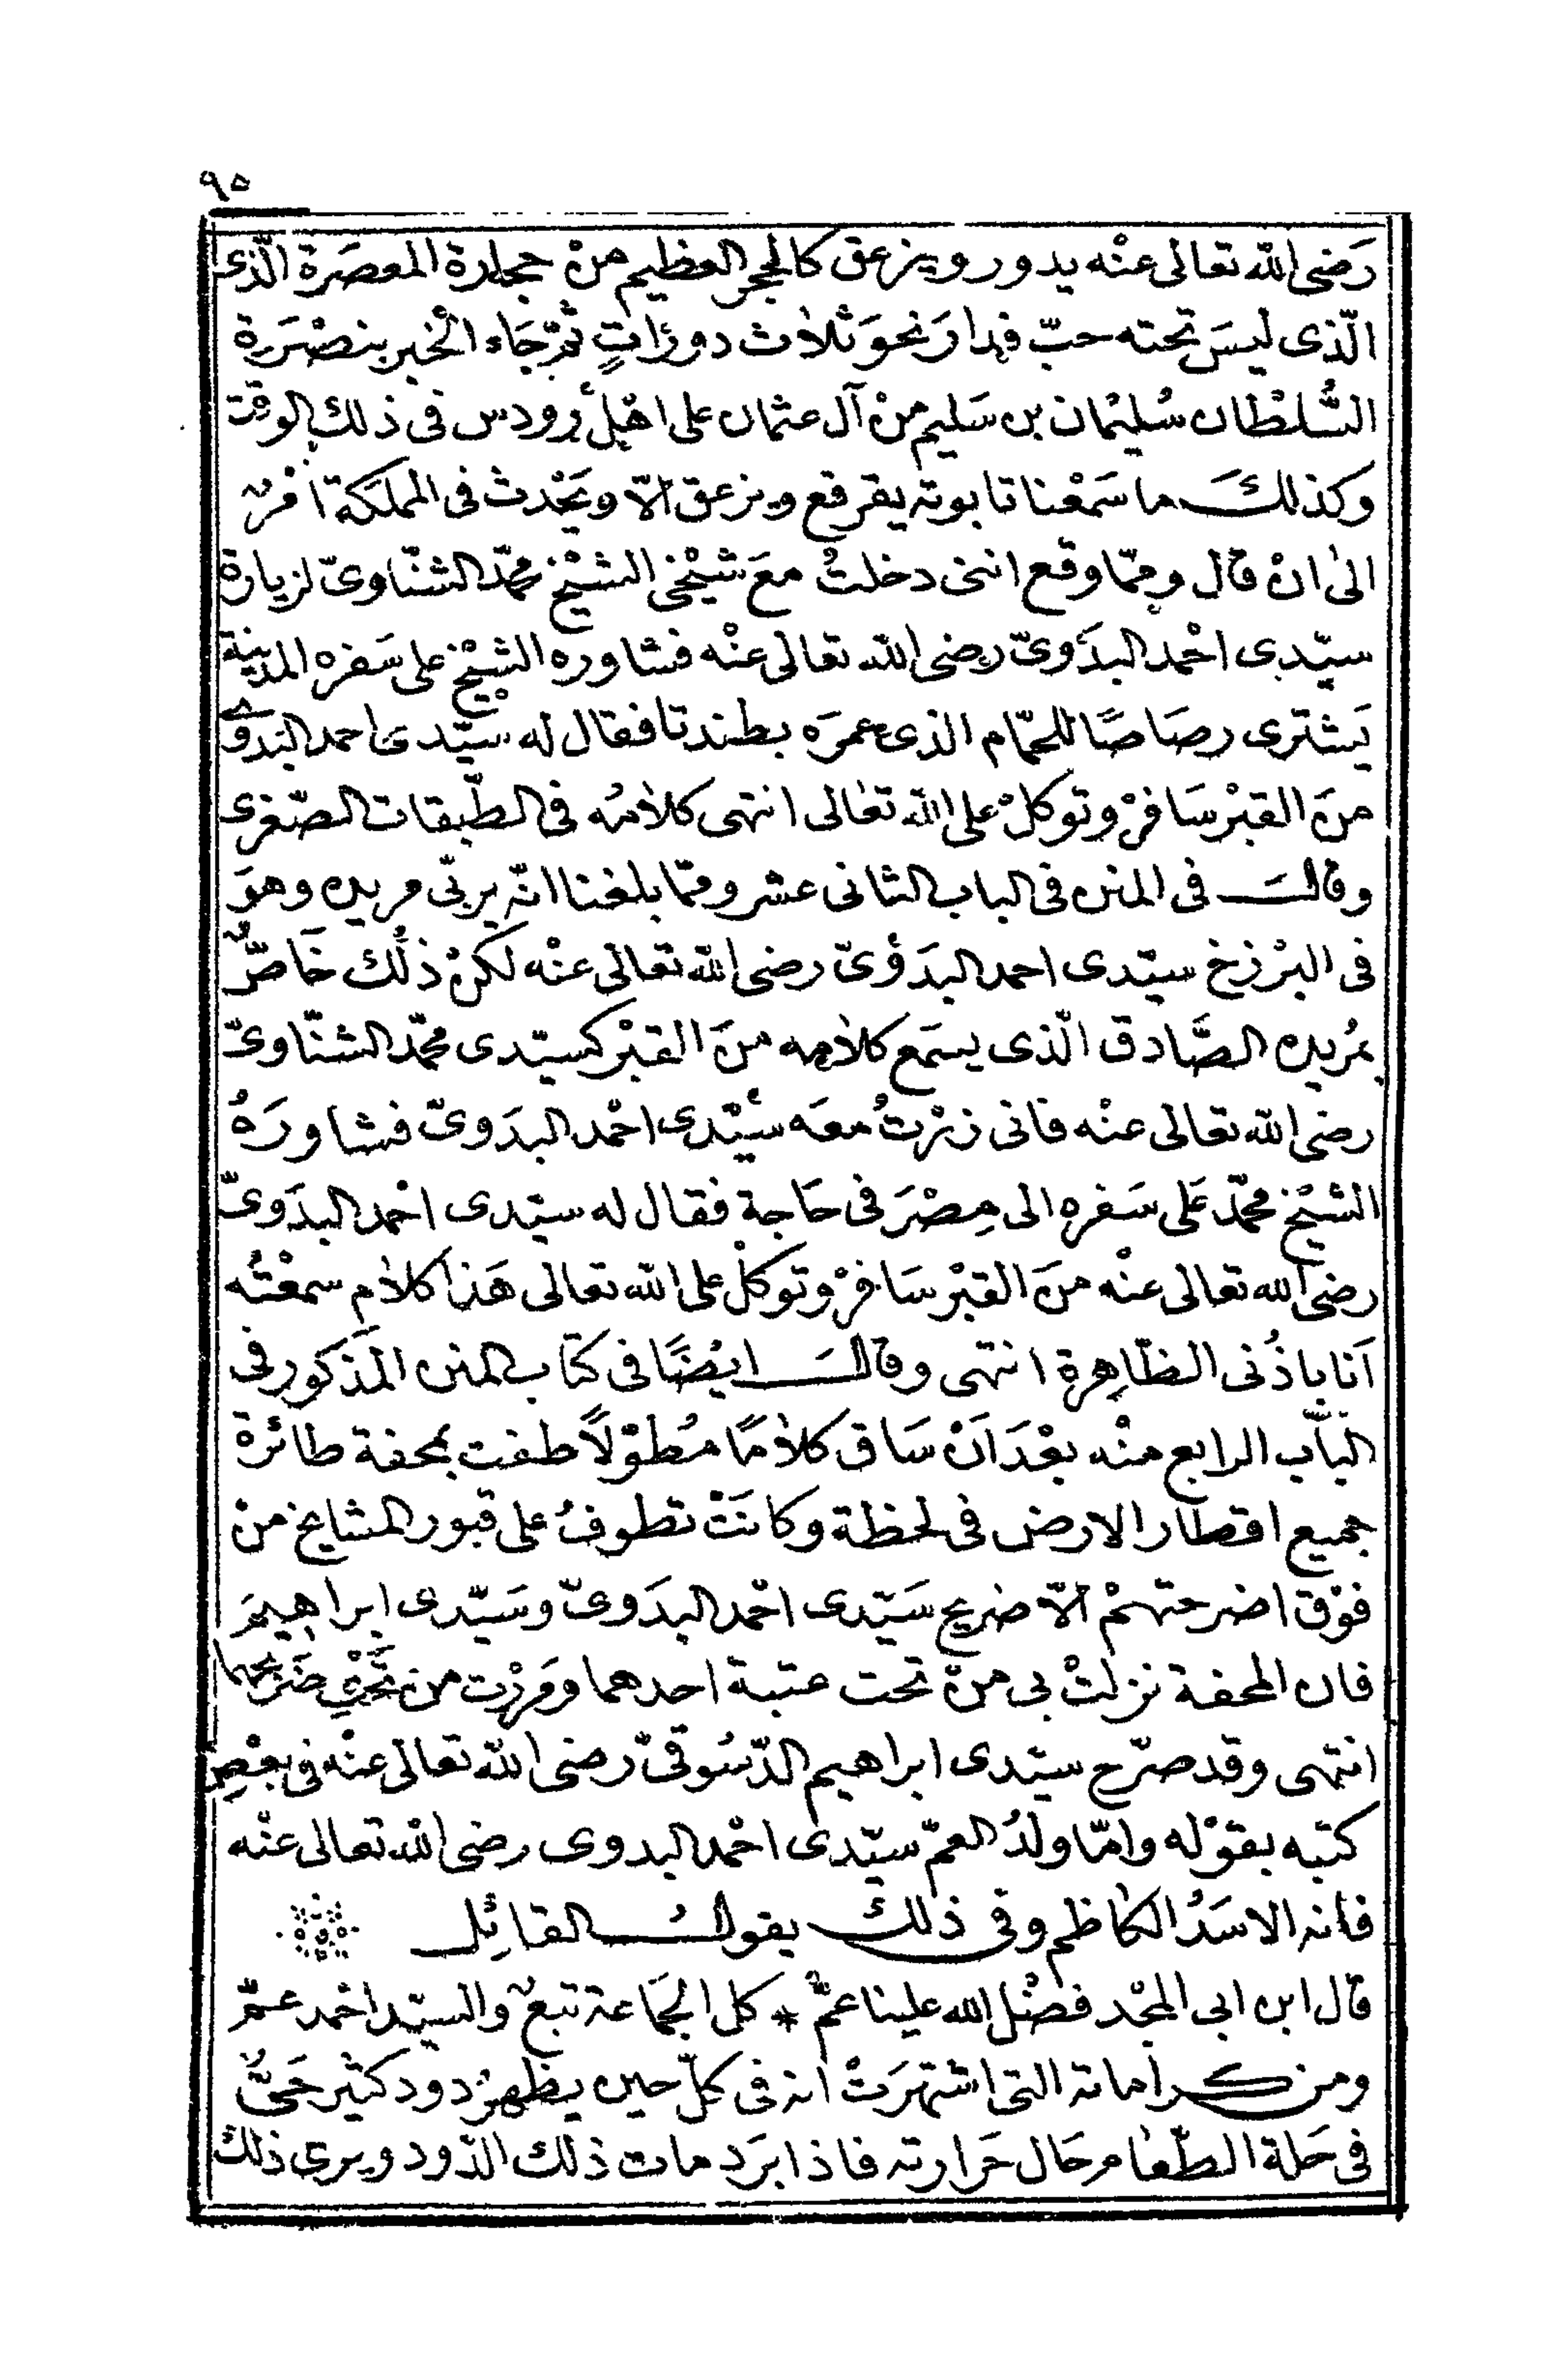 ٩٥
رَضى الله تعالى عنْه يدور ويزعق كالحجر العظيم منْ حجارة المعصَرة الّذى
الّذى ليسَ تحته حبّ فدارَ نحوَ ثلاث دورَاتٍ ثمّ جَاء الْخبر بنصْرَة
السُّلطان سُليْمان بن سَليم منْ آل عثمان على اهْل رودس فى ذلك الوقت
وكذلكَ ما سَمعْنا تابوته يقرقع ويزعق الّا ويَحْدث فى المملكة امْر
الى انْ قال وممّا وقع اننى دخلتُ معَ شيْخى الشيْخ محمّد الشنّاوىّ لزيارة
سيّدى احْمد البدَوىّ رضى الله تعالى عنْه فشاوره الشيْخ على سَفره المدينة
يَشترى رصَاصًا للحمّام الذى عمرَه بطندتا فقال له سيّدى احمد البدوى
منَ القبْر سَافرْ وتوكلْ على الله تعَالى انتهى كلامُه فى الطّبقات الصّغرى
وقالَ فى المنن فى الباب الثانى عشر وممّا بلغنا انّه يربّى مريده وهوَ
فى البرْزخ سيّدى احمد البدَوىّ رضى الله تعالى عنْه لكنْ ذلك خَاصٌّ
بمُريده الصَّادق الّذى يسمَع كلامه منَ القبْر كسيّدى محمّد الشنّاوىّ
رضى الله تعالى عنْه فانى زرْتُ معَه سيّدى احْمد البدَوىّ فشاورَهُ
الشيْخ محمّد عَلى سَفره الى مِصْرَ فى حَاجة فقال له سيّدى احْمد البدَوىّ
رضى الله تعالى عنْه منَ القبْر سَافرْ وتوكلْ على الله تعالى هَذا كلام سمعْتُه
اَنا باذُنى الظّاهِرة انتهى وقالَ ايْضًا فى كتَاب المنن المَذكور فى
البَاب الرابع منْه بعْدَ اَنْ سَاق كلامًا مُطوَّلًا طفت بمحفة طائرة
جميع اقطار الارض فى لحظة وكانَتْ تطوفُ على قبور المشايخ منْ
فوْق اضرحتهمْ الّا ضريح سَيّدى احْمد البدَوىّ وسَيّدى ابراهيمَ
فان المحفة نزلتْ بى منْ تحت عتبة احدهما ومَرّت من تَحْت ضَريحهما
انتهى وقد صرّح سيّدى ابراهيم الدّسُوقىّ رضى الله تعالى عنْه فى بعْض
كتبه بقوْله وامّا ولدُ العمّ سيّدى احْمد البدوى رضى الله تعالى عنْه
فانه الاسَدُ الكاظم وفى ذلك يقولُ القائِل
قال ابن ابى المجْد فضْل الله علينا عمّ * كل الجَمَاعة تبعٌ والسيّد احْمد عمّ
ومن كراماته التى اشتهرَتْ انه فى كلّ حين يظهرُ دود كثير حَىٌّ
فى حَلة الطّعام حَال حَرارته فاذا برَد مات ذلك الدّود ويرى ذلك